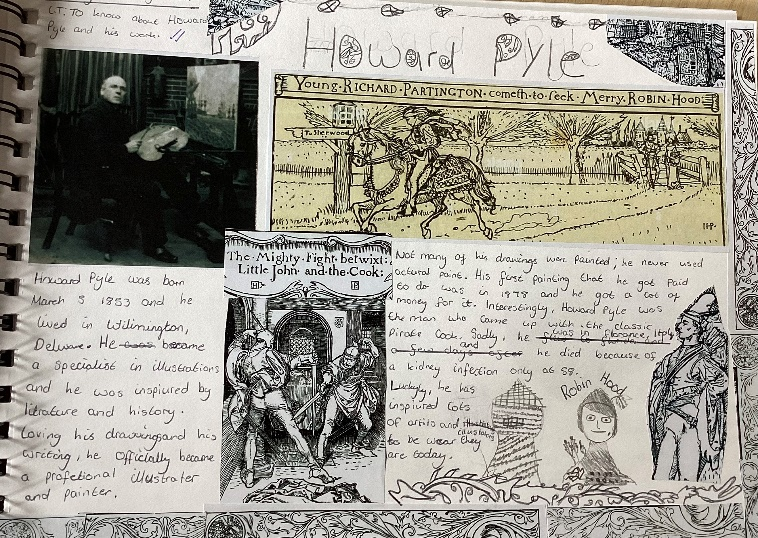 L.T. TO know about Howard
Pyle and his work.
Howard Pyle
Young · RICHARD · PARTINGTON · cometh · to · seek · Merry · ROBIN · HOOD ·
To Sherwood
H.P.
The · Mighty · Fight · betwixt ·
Little John · and · the · Cook ·
Howard Pyle was born
March 5 1853 and he
lived in Wilimington,
Delware. He became
a specialist in illustrations
and he was inspiured by
litrature and history.
Loving his drawings and his
writing, he officially became
a profetional illustrater
and painter.
Not many of his drawings were painted; he never used
actural paint. His first painting that he got paid
to do was in 1878 and he got a lot of
money for it. Interestingly, Howard Pyle was
the man who came up with the classic
Pirate Cook. Sadly, he was in florence, Itply
a few days after and he died because of
a kidney infection only at 58.
Luckly, he has
inspiured lots
of artits and
to be wear they
are today.
Robin Hood